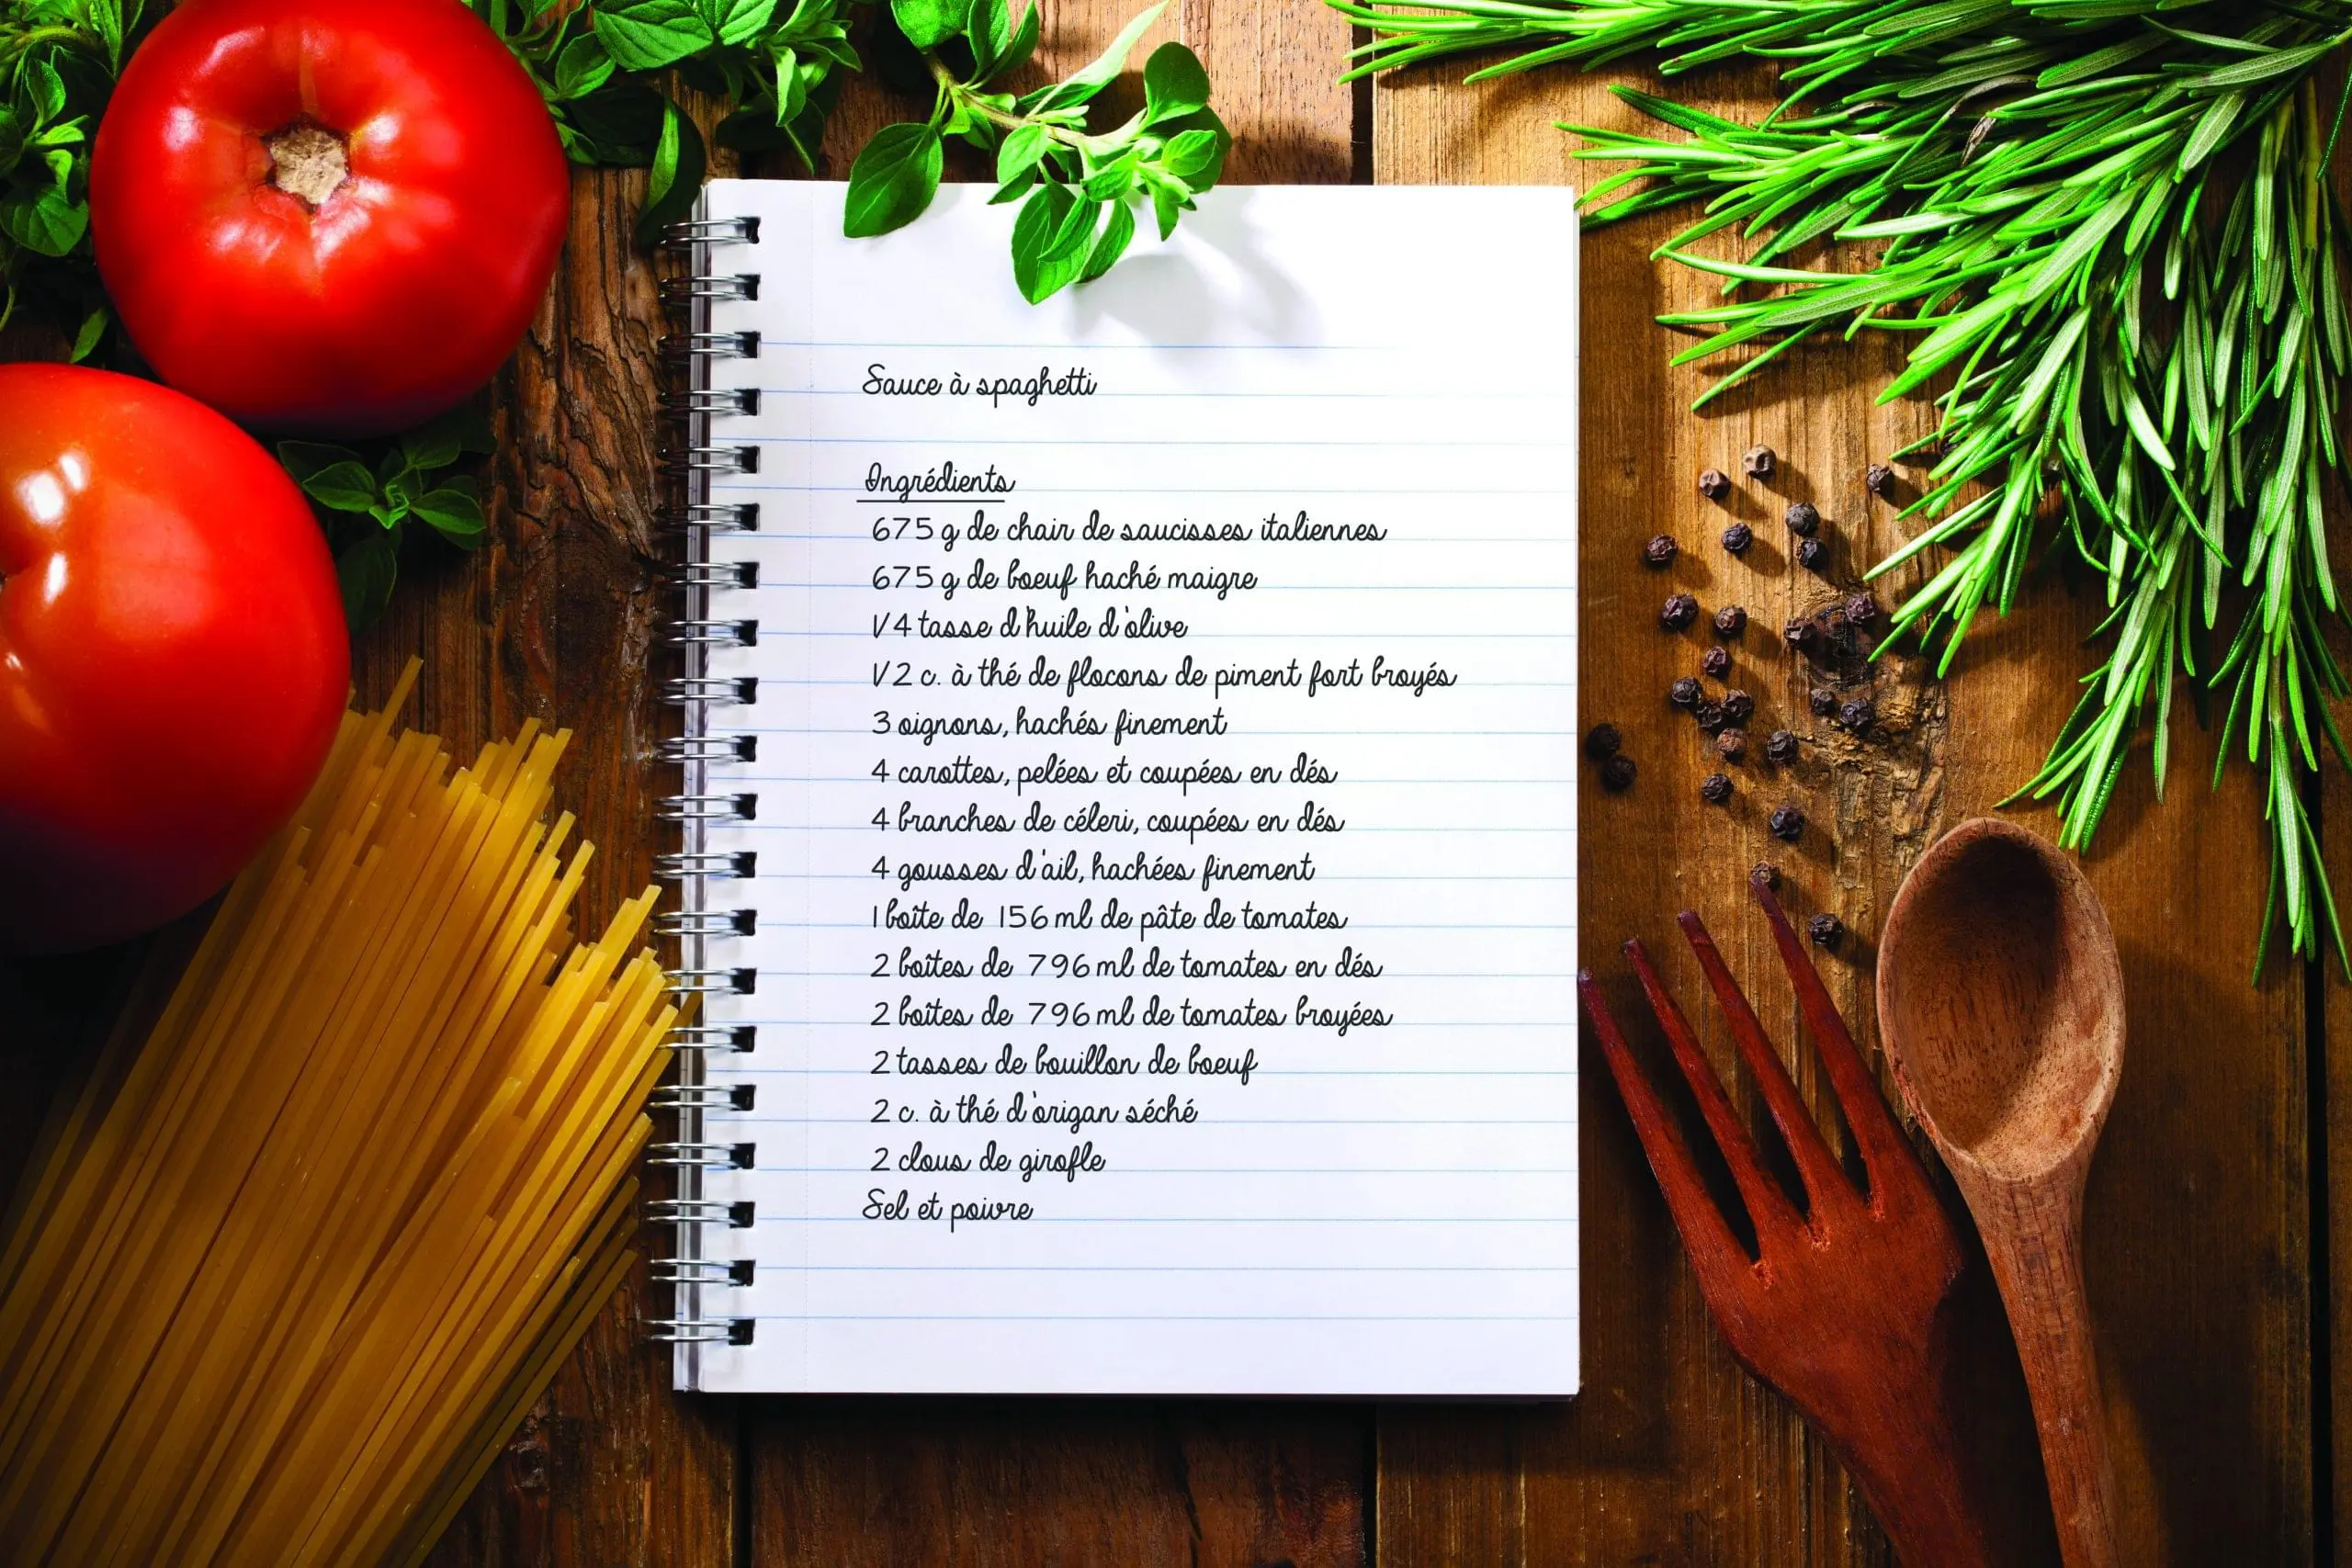 Sauce à spaghetti
Ingrédients
675 g de chair de saucisses italiennes
675 g de boeuf haché maigre
1/4 tasse d'huile d'olive
1/2 c. à thé de flocons de piment fort broyés
3 oignons, hachés finement
4 carottes, pelées et coupées en dés
4 branches de céleri, coupées en dés
4 gousses d'ail, hachées finement
1 boîte de 156 ml de pâte de tomates
2 boîtes de 796 ml de tomates en dés
2 boîtes de 796 ml de tomates broyées
2 tasses de bouillon de boeuf
2 c. à thé d'origan séché
2 clous de girofle
Sel et poivre